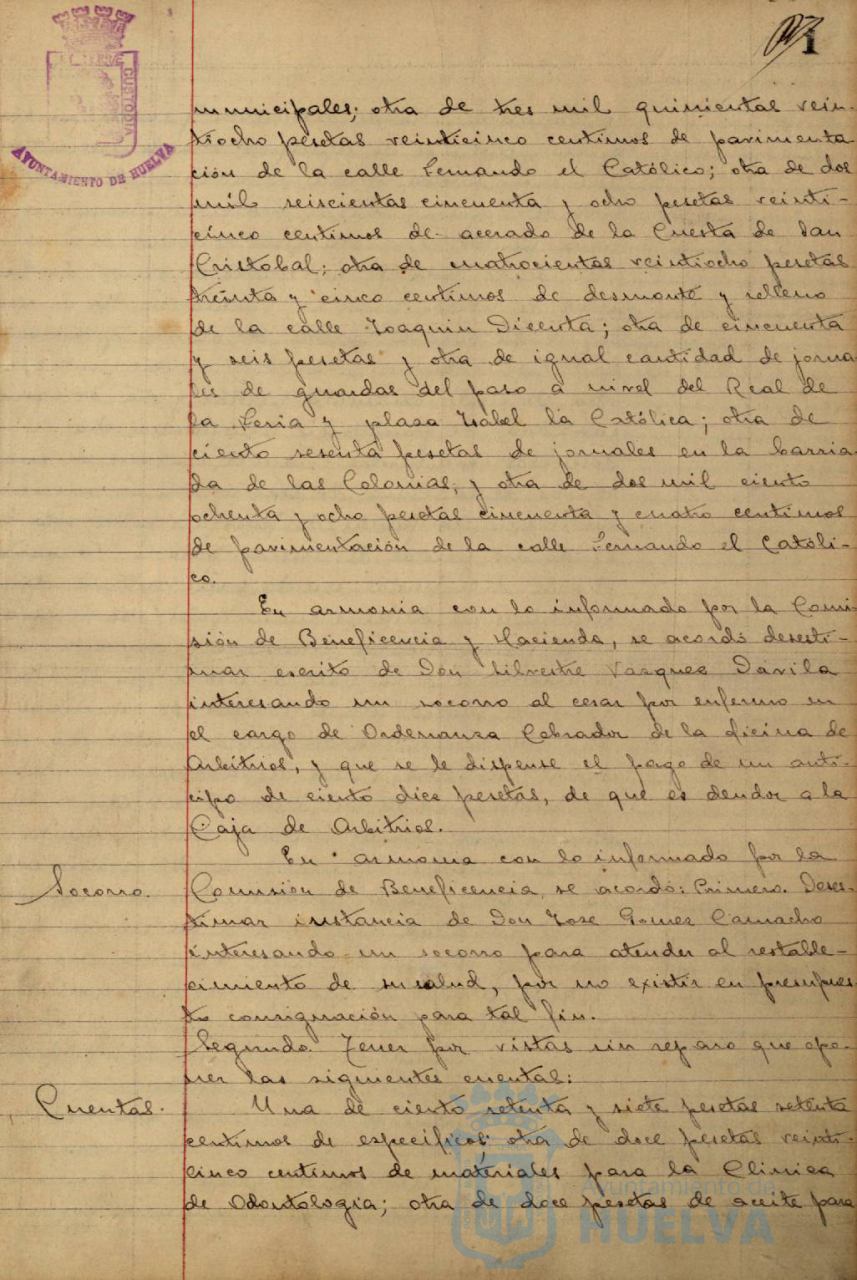 1
AYUNTAMIENTO DE HUELVA
municipales; otra de tres mil quinientas vein-
tiocho pesetas veinticinco centimos de pavimenta
ción de la calle Fernando el Católico; otra de dos
mil seiscientas cincuenta y ocho pesetas veinti-
cinco centimos de acerado de la Cuesta de San
Cristobal; otra de cuatrocientas veintiocho pesetas
treinta y cinco centimos de desmonte y relleno
de la calle Joaquin Dicenta; otra de cincuenta
y seis pesetas y otra de igual cantidad de jorna
les de guardas del paso a nivel del Real de
la Feria y plaza Isabel la Católica; otra de
ciento sesenta pesetas de jornales en la barria
da de las Colonias, y otra de dos mil ciento
ochenta y ocho pesetas cincuenta y cuatro centimos
de pavimentación de la calle Fernando el Católi-
co.
En armonia con lo informado por la Comi
sión de Beneficencia y Hacienda, se acordó desesti-
mar escrito de Don Silvestre Vazquez Davila
interesando un socorro al cesar por enfermo en
el cargo de Ordenanza Cobrador de la oficina de
Arbitrios, y que se le dispense el pago de un anti-
cipo de ciento dice pesetas, de que es deudor a la
Caja de Arbitrios.
Socorro.
En armonia con lo informado por la
Comisión de Beneficencia, se acordó: Primero. Deses-
timar instancia de Don Jose Gomez Camacho
interesando un socorro para atender al restable-
cimiento de su salud, por no existir en presupues
to consignación para tal fin.
Segundo. Tener por vistas sin reparo que opo-
ner las siguientes cuentas:
Cuentas.
Una de ciento setenta y siete pesetas setenta
centimos de especificos; otra de doce pesetas veinti-
cinco centimos de materiales para la Clinica
de Odontologia; otra de doce pesetas de aceite para
Ayuntamiento de
HUELVA